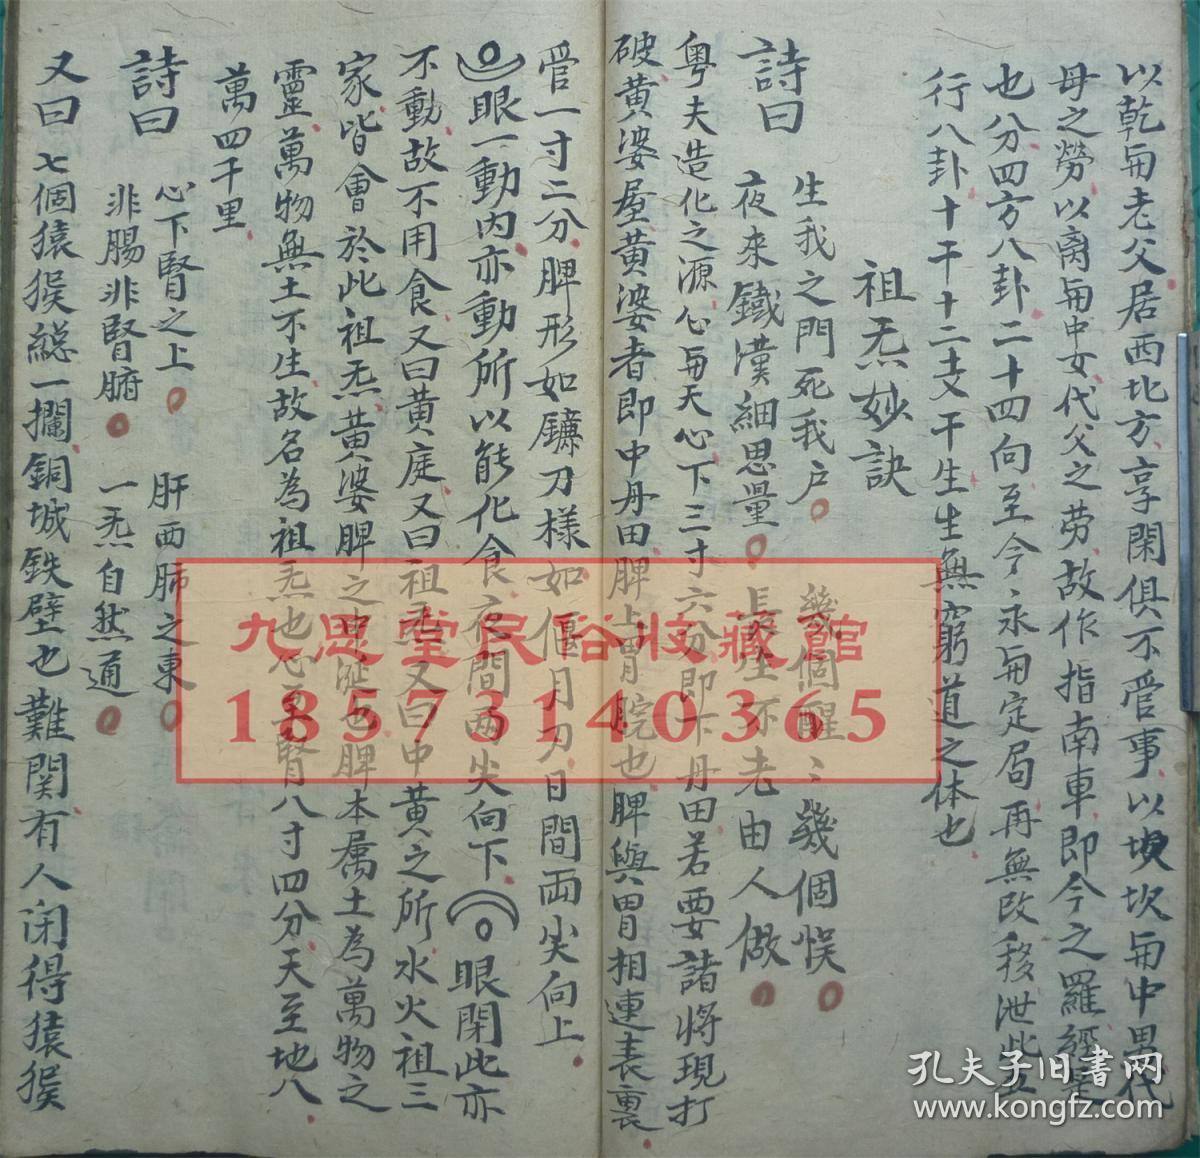 以乾爲老父居西北方享閑俱不管事以坎爲中男代
母之勞以离爲中女代父之劳故作指南車即今之羅經是
也八分四方八卦二十四向至今永爲定局再無改移泄此五
行八卦十干十二支干生生無窮道之体也
祖炁妙訣
詩曰
生我之門死我户 幾個醒〻幾個悮
夜來鐵漢細思量 長生不老由人做
粤夫造化之源心爲天心下三寸六分即下丹田若要諸將現打
破黄婆屋黄婆者即中丹田脾上胃脘也脾與胃相連表裏
管一寸二分脾形如鐮刀樣如偃月刀日間両尖向上
眼一動内亦動所以能化食夜間両尖向下眼閉此亦
不動故不用食又曰黄庭又曰祖炁又曰中黄之所水火祖三
家皆會於此祖炁黄婆脾之中涎也脾本属土為萬物之
靈萬物無土不生故名為祖炁也心下腎八寸四分天至地八
萬四千里
詩曰
心下腎之上 肝西肺之東
非腸非腎腑 一炁自然通
又曰七個猿猴總一攔銅城鉄壁也難関有人闭得猿猴
九思堂民俗收藏館
18573140365
孔夫子旧书网
www.kongfz.com